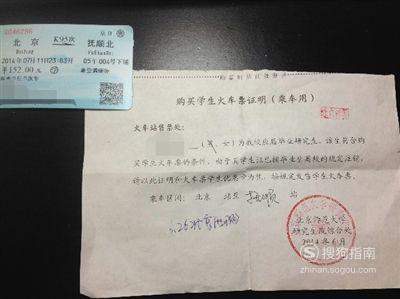 北京
K95次
抚顺北
2014年07月11日23:03开
05车004号下铺
￥152.00元
购买学生火车票证明（乘车用）
火车站售票处：
（男、女）为我校应届毕业研究生，该生符合购
买学生火车票的条件，由于其学生证已按毕业生离校的规定注销，
请以此证明和火车票学生优惠卡为凭，按规定发售学生火车票。
乘车区间：北京 站至 抚顺 站
北京师范大学
研究生院综合处
2014年6月
搜狗指南
zhinan.sogou.com